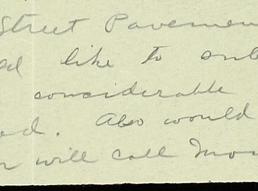 Street Pavemen
ed like to sub
considerable
ad. Also would
r will call Mon